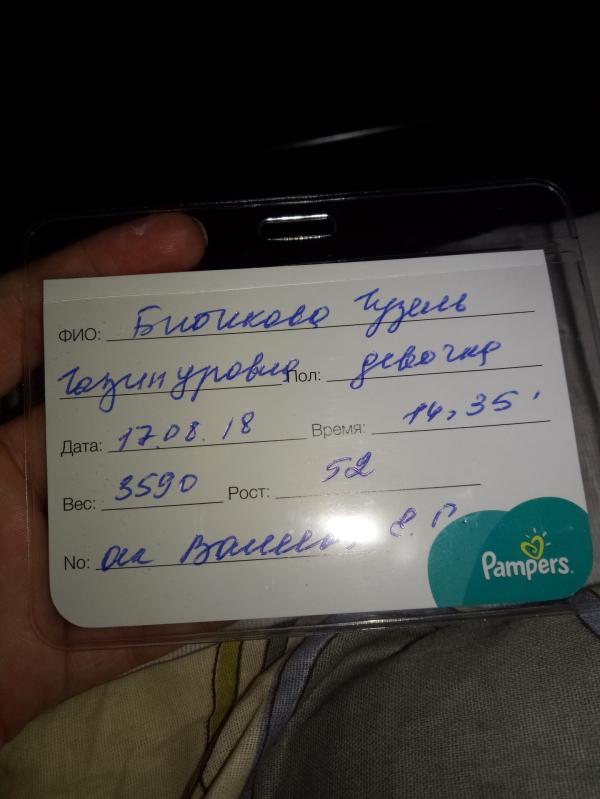 ФИО: Гузель
Газинуровна Пол: девочка
Дата: 17.08.18 Время: 14,35
Вес: 3590 Рост: 52
No: ак
Pampers